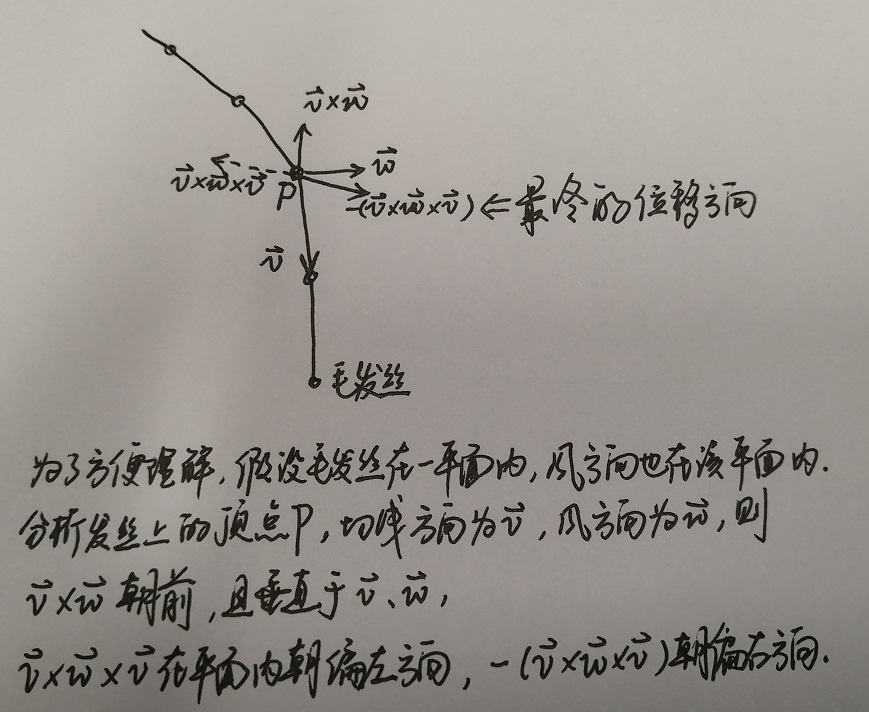 v⃗×w⃗
w⃗
v⃗×w⃗×v⃗
P
-(v⃗×w⃗×v⃗) ⇐ 最终的位移方向
v⃗
毛发丝
为了方便理解,假设毛发丝在一平面内,风方向也在该平面内.
分析发丝上的顶点P,切线方向为v⃗,风方向为w⃗,则
v⃗×w⃗朝前,且垂直于v⃗、w⃗,
v⃗×w⃗×v⃗在平面内朝偏左方向,-(v⃗×w⃗×v⃗)朝偏右方向.